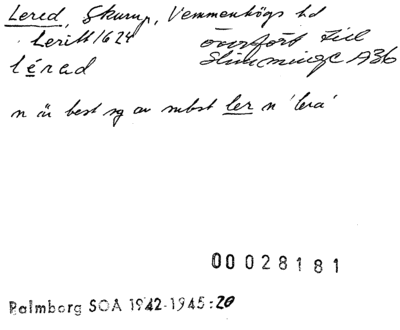 Lered, Skurup, Vemmenhögs hd
Leritt 1624
överfört till
Slimminge A36
léræd
n är best sg av subst ler n 'lera'
00028181
Palmborg SOA 1942-1945:20